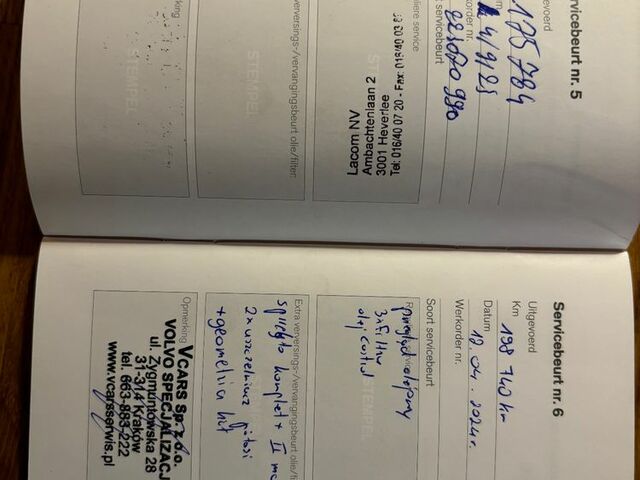 Servicebeurt nr. 5
Uitgevoerd
175 784
4/9/23
Werkorder nr.
servicebeurt
Lacom NV
Ambachtenlaan 2
3001 Heverlee
Tel: 016/40 07 20 - Fax: 016/40 03 67
STEMPEL
versings-/vervangingsbeurt olie/filter:
STEMPEL
Servicebeurt nr. 6
Uitgevoerd
Km 198 740 km
Datum 12 04. 2024r.
Werkorder nr.
Soort servicebeurt
przegląd olejowy
3x filtry
olej castrol
STEMPEL
Extra verversings-/vervangingsbeurt olie/fi
sprzęgło komplet + II
2x uszczelniacz
+ geometria kół
Opmerking
VCARS Sp. z o.o.
VOLVO SPECJALIZACJ
ul. Zygmuntowska 28
31-314 Kraków
tel. 663-883-222
www.vcarsserwis.pl